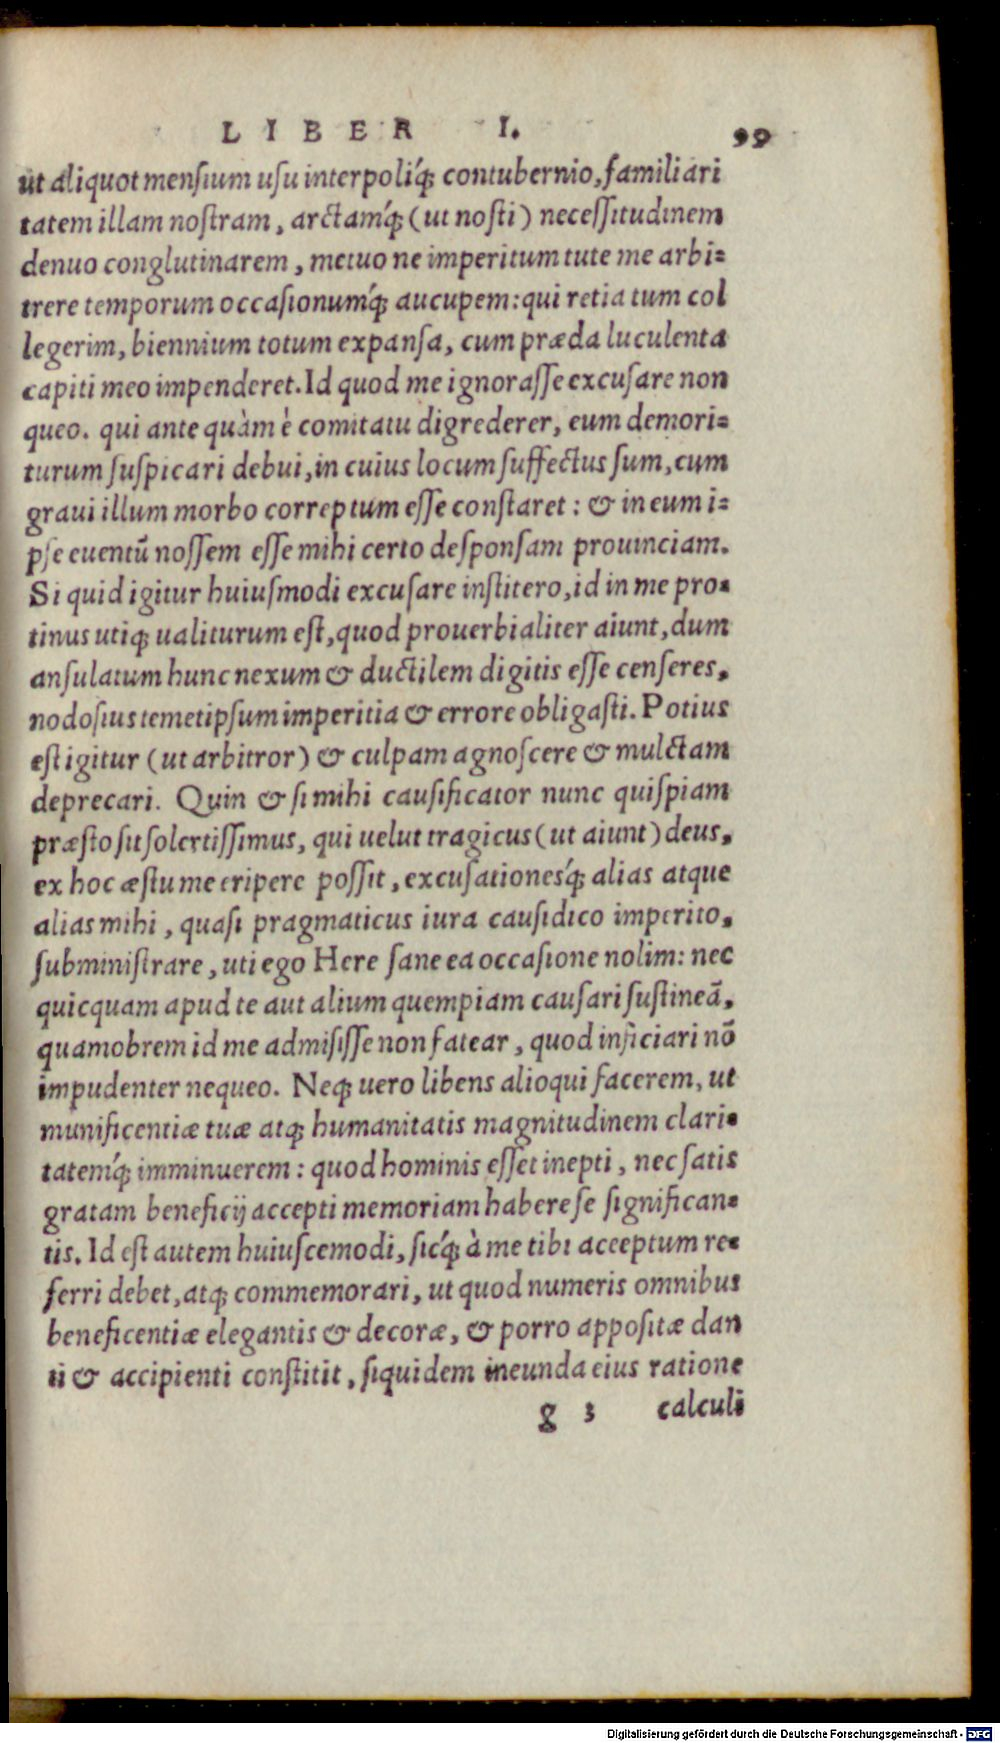 LIBER I. 99
ut aliquot mensium usu interpoliq́; contubernio, familiari
tatem illam nostram, arctamq́; (ut nosti) necessitudinem
denuo conglutinarem, metuo ne imperitum tute me arbi=
trere temporum occasionumq́; aucupem: qui retia tum col
legerim, biennium totum expansa, cum præda luculenta
capiti meo impenderet. Id quod me ignorasse excusare non
queo. qui ante quàm è comitatu digrederer, eum demori=
turum suspicari debui, in cuius locum suffectus sum, cum
graui illum morbo correptum esse constaret: & in eum i=
pse euentũ nossem esse mihi certo desponsam prouinciam.
Si quid igitur huiusmodi excusare institero, id in me pro=
tinus utiq; ualiturum est, quod prouerbialiter aiunt, dum
ansulatum hunc nexum & ductilem digitis esse censeres,
nodosius temetipsum imperitia & errore obligasti. Potius
est igitur (ut arbitror) & culpam agnoscere & mulctam
deprecari. Quin & si mihi causificator nunc quispiam
præsto sit solertissimus, qui uelut tragicus (ut aiunt) deus,
ex hoc æstu me eripere possit, excusationesq́; alias atque
alias mihi, quasi pragmaticus iura causidico imperito,
subministrare, uti ego Here sane ea occasione nolim: nec
quicquam apud te aut alium quempiam causari sustineã,
quamobrem id me admisisse non fatear, quod inficiari nõ
impudenter nequeo. Neq; uero libens alioqui facerem, ut
munificentiæ tuæ atq; humanitatis magnitudinem clari=
tatemq́; imminuerem: quod hominis esset inepti, nec satis
gratam beneficij accepti memoriam habere se significan=
tis. Id est autem huiuscemodi, sicq́; à me tibi acceptum re=
ferri debet, atq; commemorari, ut quod numeris omnibus
beneficentiæ elegantis & decoræ, & porro appositæ dan
ti & accipienti constitit, siquidem ineunda eius ratione
g 3 calculi
Digitalisierung gefördert durch die Deutsche Forschungsgemeinschaft - DFG